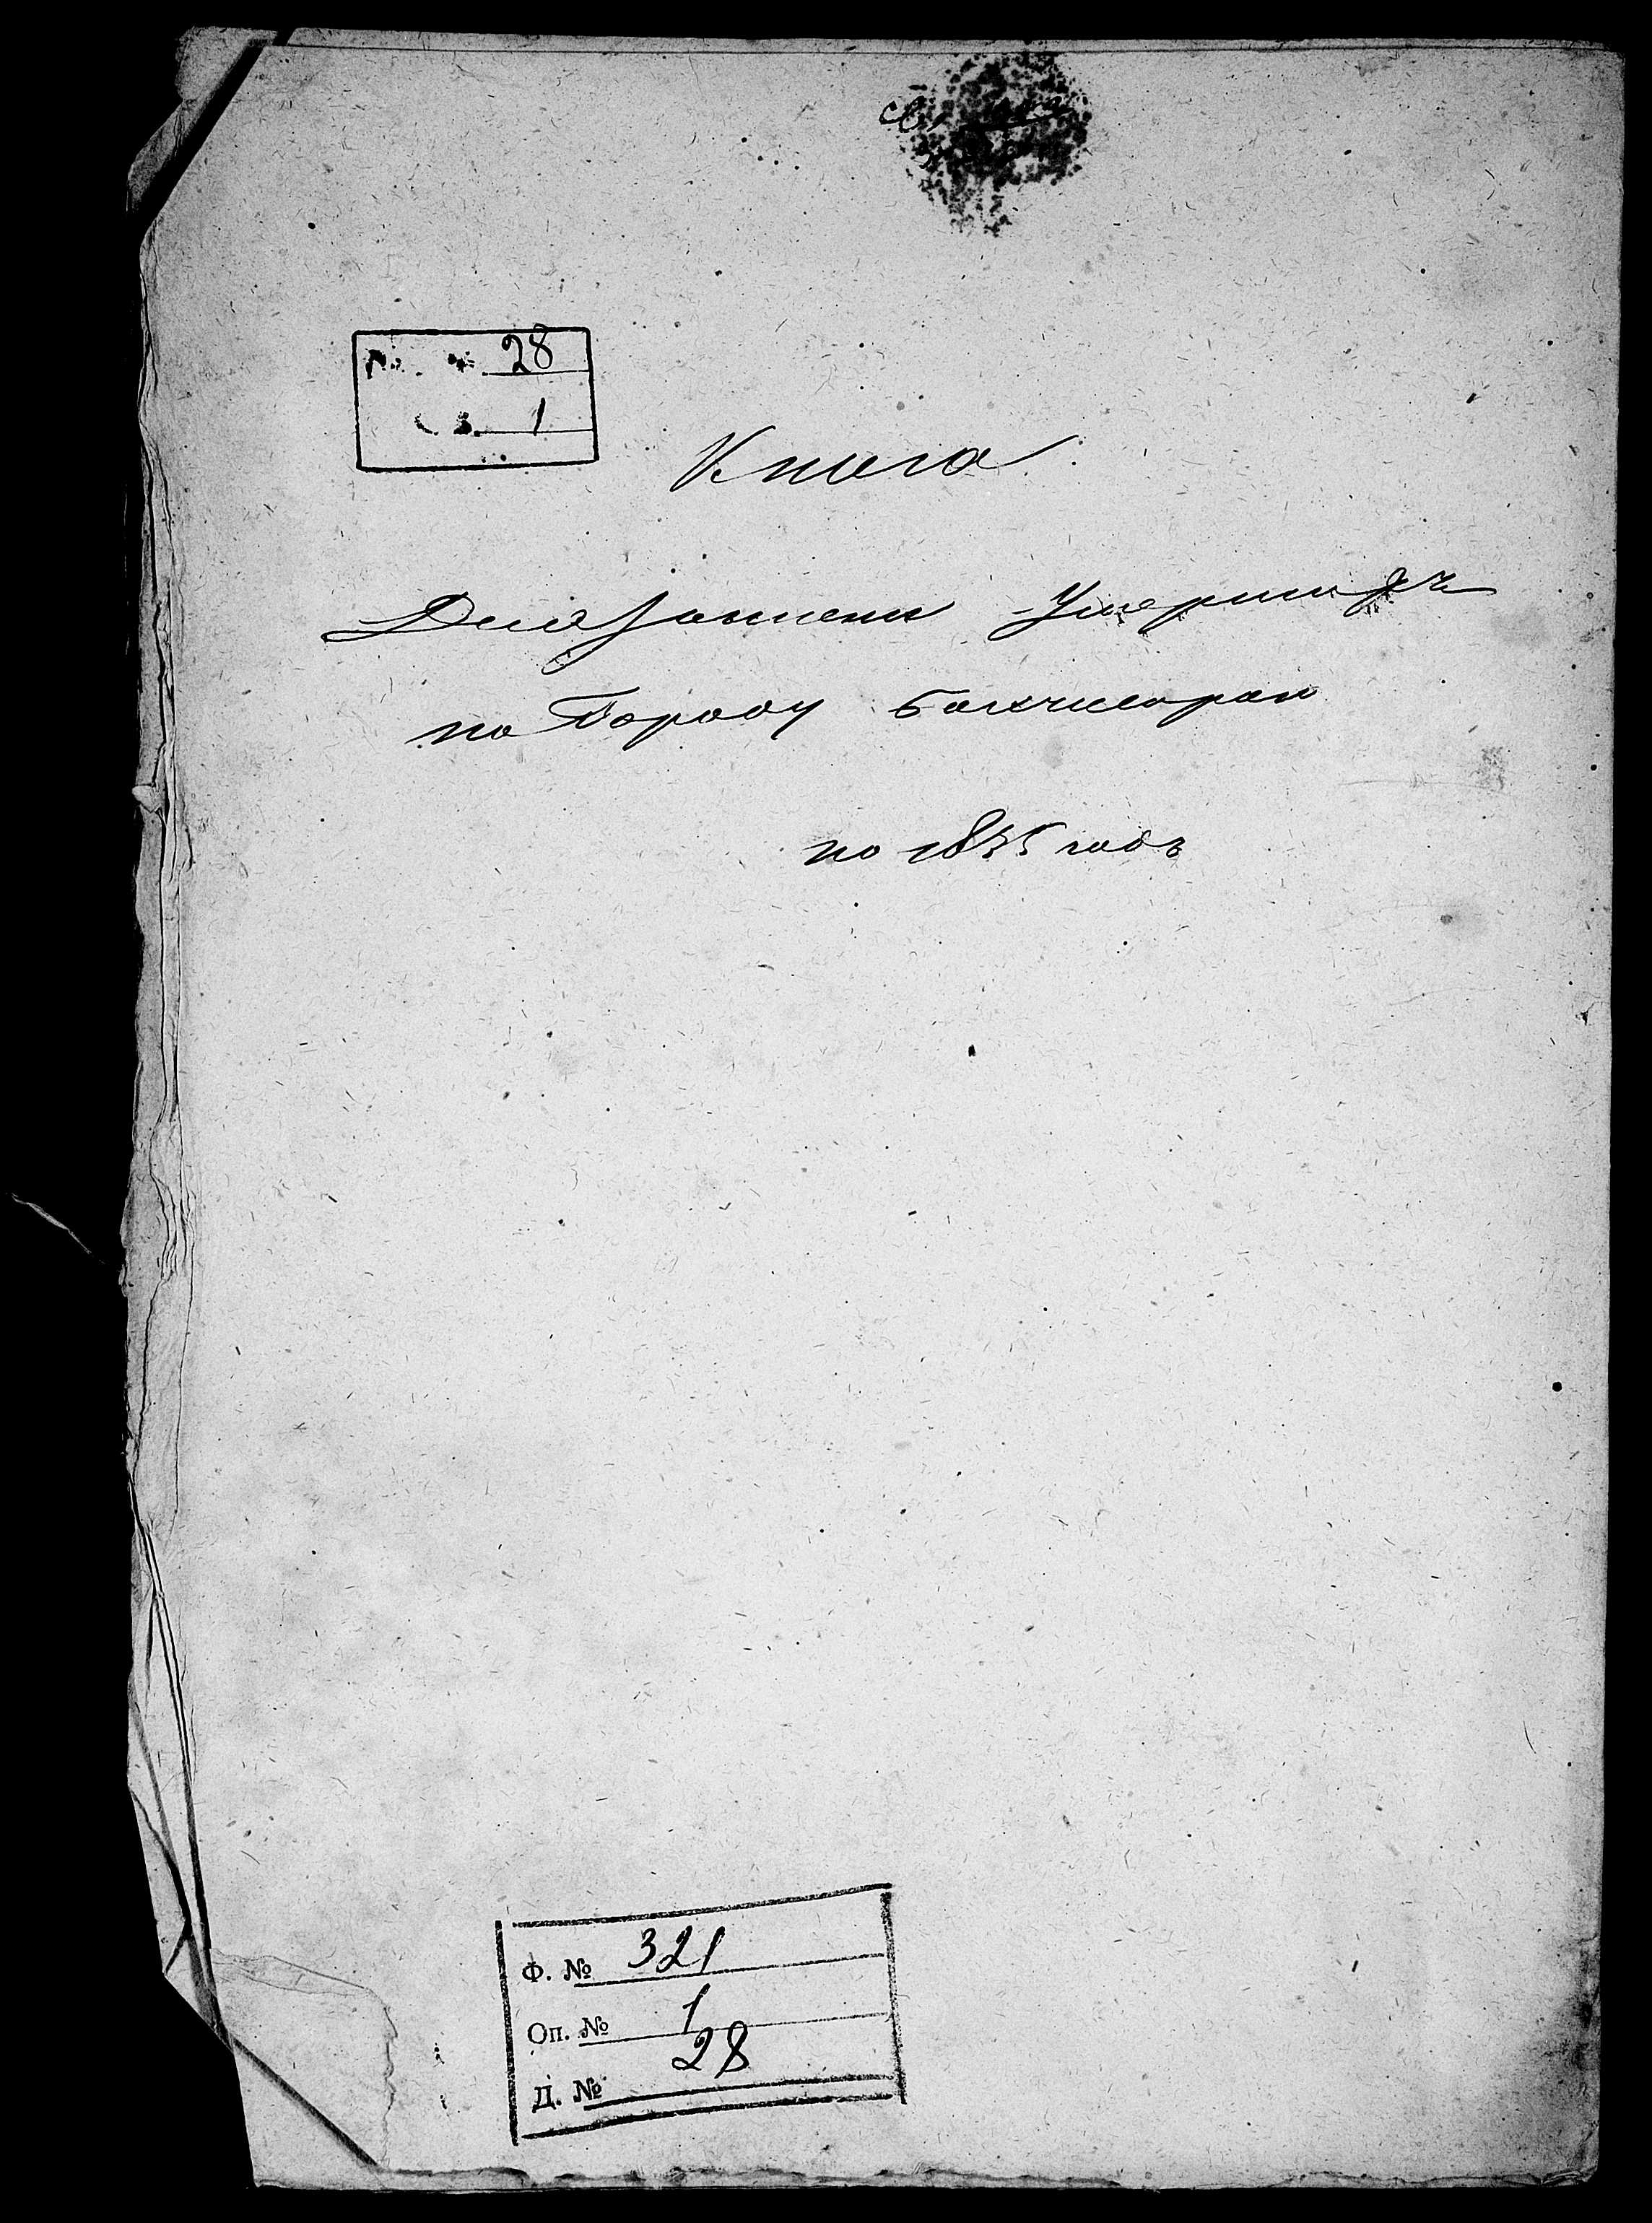 28
1
Книга
Для записки Умершихъ
по Городу Бахчисараю
на 18 годъ
Ф. № 321
Оп. № 1
Д. № 28